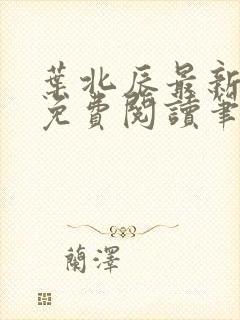 葉北辰最新
免費閱讀筆
蘭澤